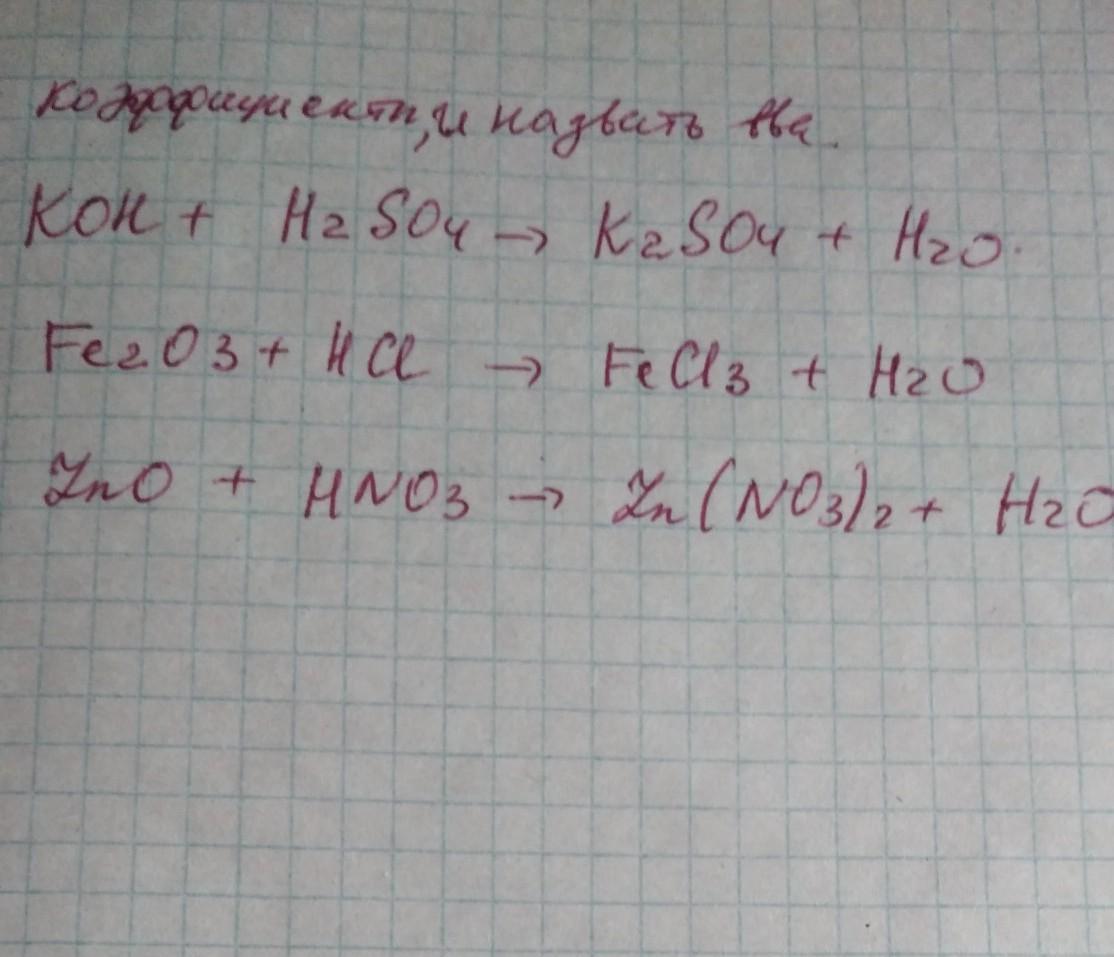 коэффициенты, и назвать в-ва.
KOH + H2SO4 → K2SO4 + H2O.
Fe2O3 + HCl → FeCl3 + H2O
ZnO + HNO3 → Zn(NO3)2 + H2O